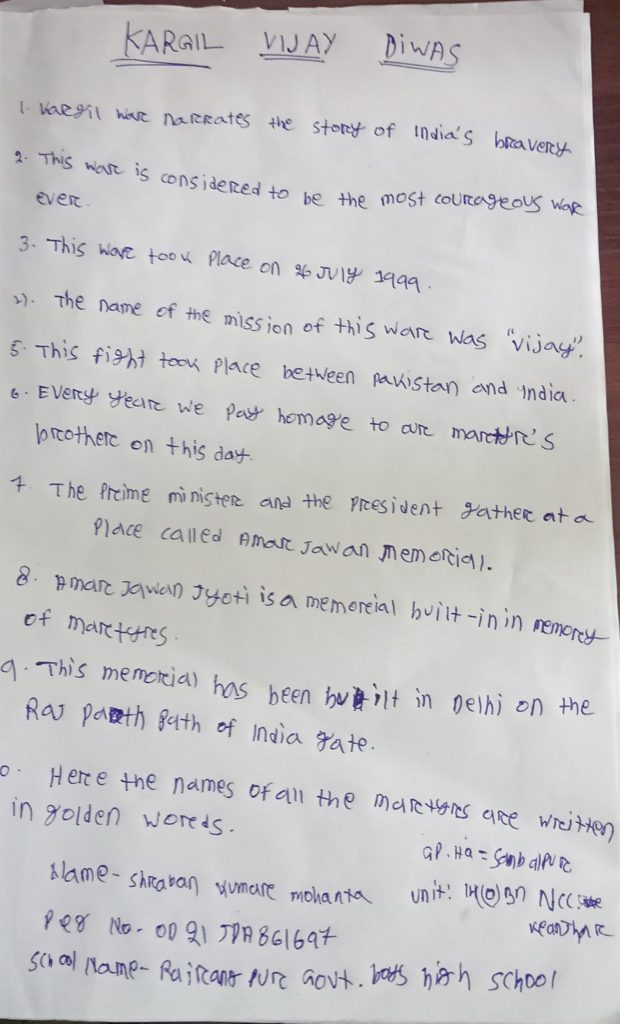 KARGIL VIJAY DIWAS
1. Kargil War narrates the story of India's bravery
2. This war is considered to be the most courageous war
ever.
3. This war took place on 26 JULY 1999.
4. The name of the mission of this war was "vijay".
5. This fight took place between pakistan and India.
6. Every year we pay homage to our martyr's
brother on this day.
7. The Prime minister and the president gather at a
place called Amar Jawan memorial.
8. Amar Jawan Jyoti is a memorial built-in in memory
of martyres.
9. This memorial has been built in Delhi on the
Raj path path of India gate.
0. Here the names of all the martyrs are written
in golden words.
GP. HQ = Sambalpur
Name- Shraban kumar mohanta unit: 14(O) BN NCC
Keonjhar
Reg No- OD 21 JDA 861697
School Name- Govt. boys high school